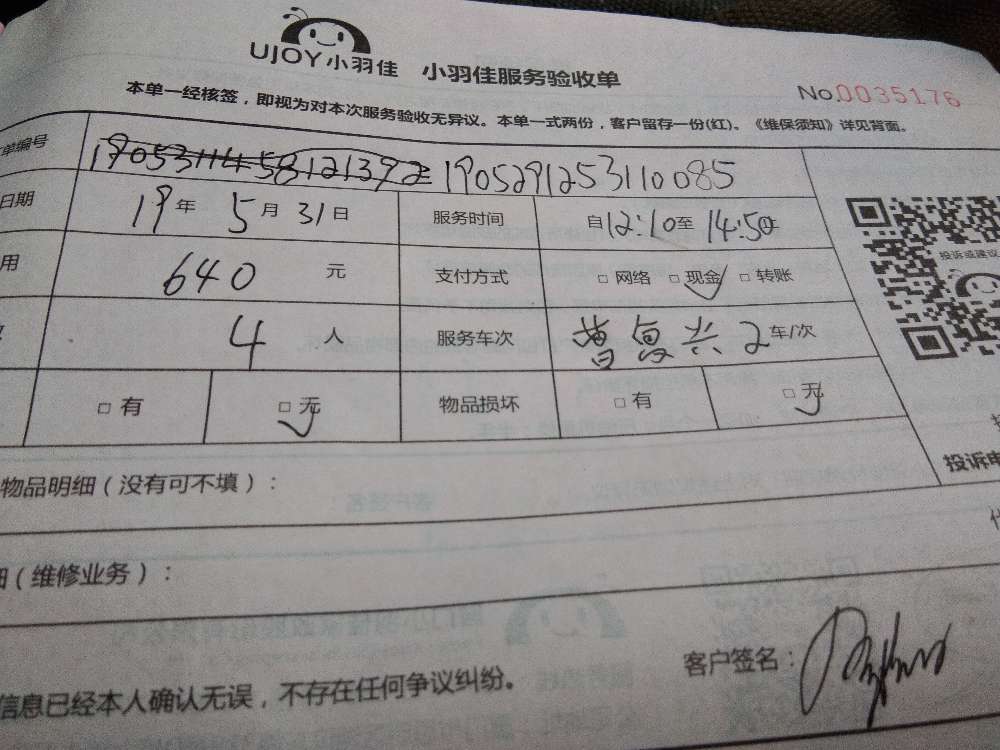 UJOY小羽佳 小羽佳服务验收单
No.0035176
本单一经核签，即视为对本次服务验收无异议。本单一式两份，客户留存一份(红)。《维保须知》详见背面。
单编号 1905291253110085
日期 19年 5月 31日 服务时间 自12:10至 14:50止
用 640 元 支付方式 □网络 □现金 □转账
4 人 服务车次 曾复兴 2 车/次
□有 □无 物品损坏 □有 □无
投诉或建议
投诉电
物品明细（没有可不填）：
细（维修业务）：
客户签名：
信息已经本人确认无误，不存在任何争议纠纷。